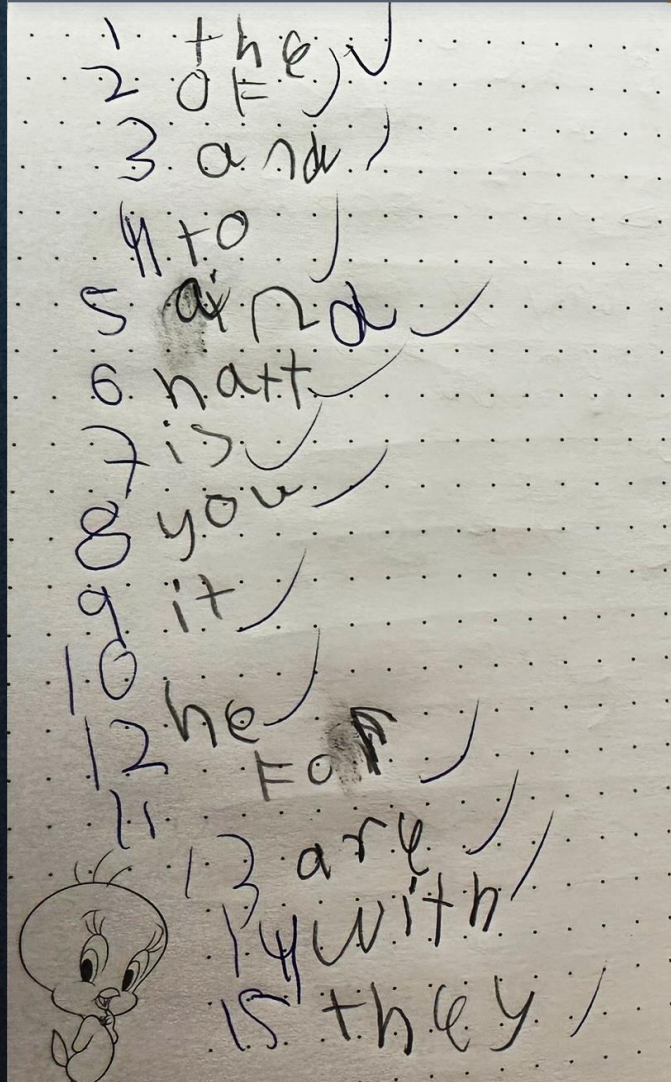 1 the
2 OF
3 and
4 to
5 aind
6 hatt
7 is
8 you
9 it
10 he
12 FOR
11
13 are
14 with
15 they